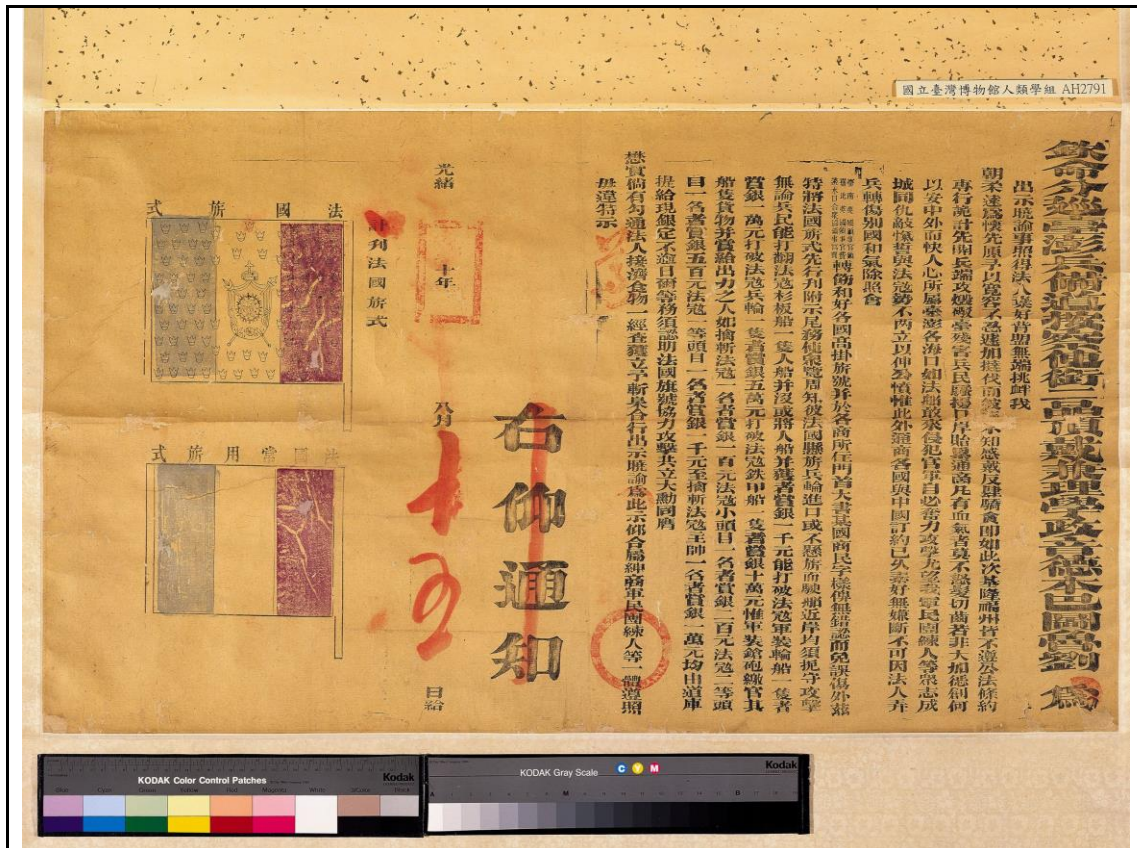 國立臺灣博物館人類學組 AH2791
欽命分巡臺澎兵備道
二品頂戴
學政
德本巴圖魯劉 為
出示曉諭事照得法人棄好背盟無端挑衅我
朝柔遠為懷先原予以寬容不忍遽加撻伐
不知感戴反肆驕貪即如此次基隆福州皆不遵公法條約
專行詭計先開兵端攻燬
臺殘害兵民
口岸
凡有血氣者莫不
切齒者非大加懲創何
以安中外而快人心所屬臺澎各海口如法船敢來侵犯官軍自必奮力攻擊尤望我軍民團練人等眾志成
城同仇敵愾誓與法寇勢不兩立以伸公憤惟此外通商各國與中國訂約已久素好無嫌斷不可因法人弄
兵轉傷別國和氣除照會
轉飭和好各國高掛旂號并於各商所住門首大書某國商民字樣俾無錯認而免誤傷外茲
特將法國旂式先行刊附示尾務使眾覽周知彼法國懸旂兵輪進口或不懸旂而駛
近岸均須扼守攻擊
無論兵民能打翻法寇杉板船一隻人船并沒或將人船并獲者賞銀一千元能打破法寇軍裝輪船一隻者
賞銀一萬元打破法寇兵輪一隻者賞銀五萬元打破法寇鉄甲船一隻者賞銀十萬元惟軍裝鎗砲繳官其
船隻貨物并賞給出力之人如擒斬法寇一名者賞銀一百元法寇小頭目一名者賞銀二百元法寇二等頭
目一名者賞銀五百元法寇一等頭目一名者賞銀一千元至擒斬法寇主帥一名者賞銀一萬元均由道庫
提給現銀定不逾日爾等務須認明法國旗號協力攻擊共立大勳同膺
懋賞倘有勾通法人接濟食物一經查獲立予斬梟合行出示曉諭為此示仰合屬紳商軍民團練人等一體遵照
毋違特示
右仰通知
光緒 十年 八月 十五 日給
計刊法國旂式
法國旂式
法國常用旂式
KODAK Color Control Patches
Kodak
Blue Cyan Green Yellow Red Magenta White 3/Color Black
KODAK Gray Scale
C Y M
Kodak
A M B